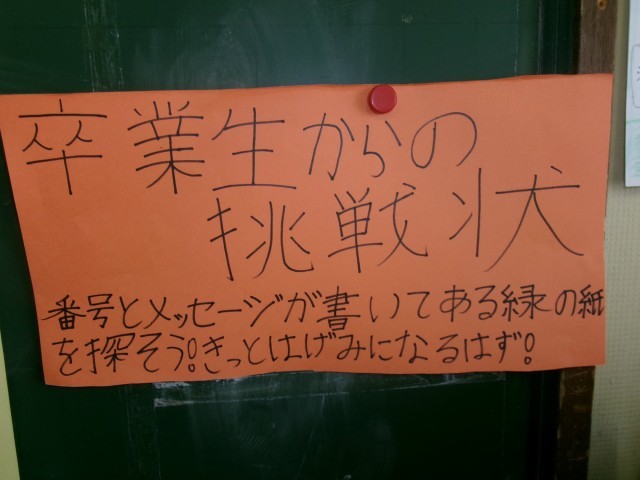 卒業生からの
挑戦状
番号とメッセージが書いてある緑の紙
を探そう!きっとはげみになるはず!